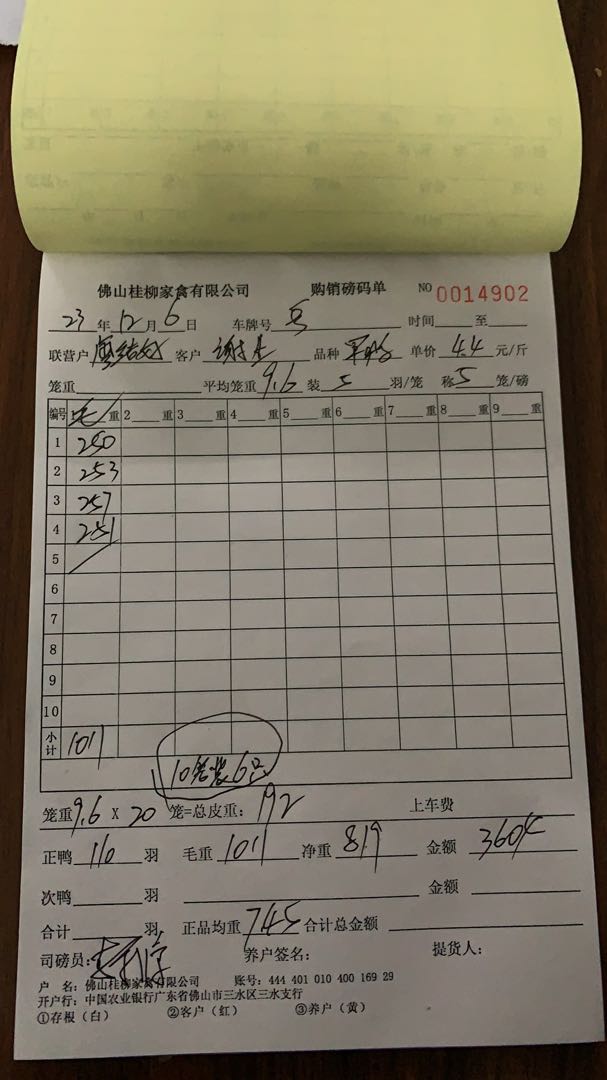 佛山桂柳家禽有限公司 购销磅码单 NO 0014902
23年12月6日 车牌号 时间 至
联营户 客户 品种 单价 4.4 元/斤
笼重 平均笼重 9.6 装 5 羽/笼 称 5 笼/磅
编号 1 毛 重 2 重 3 重 4 重 5 重 6 重 7 重 8 重 9 重
1 250
2 253
3 257
4 251
5
6
7
8
9
10
小计 1011
10笼装6只
笼重 9.6 X 20 笼=总皮重: 192 上车费
正鸭 110 羽 毛重 1011 净重 819 金额 3604
次鸭 羽 金额
合计 羽 正品均重 7.45 合计总金额
司磅员: 养户签名: 提货人:
户 名: 佛山桂柳家禽有限公司 账号: 444 401 010 400 169 29
开户行: 中国农业银行广东省佛山市三水区三水支行
①存根(白) ②客户(红) ③养户(黄)